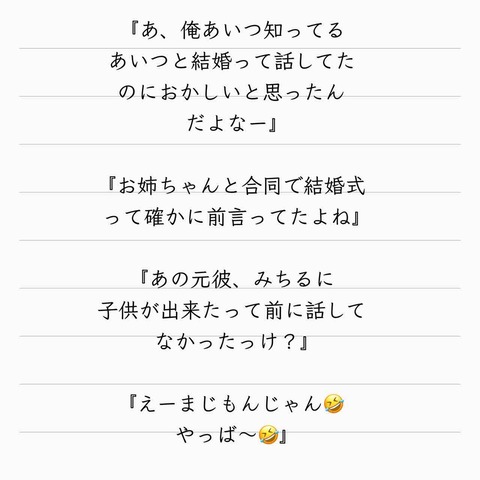 『あ、俺あいつ知ってる
あいつと結婚って話してた
のにおかしいと思ったん
だよなー』
『お姉ちゃんと合同で結婚式
って確かに前言ってたよね』
『あの元彼、みちるに
子供が出来たって前に話して
なかったっけ？』
『えーまじもんじゃん🤣
やっば〜🤣』